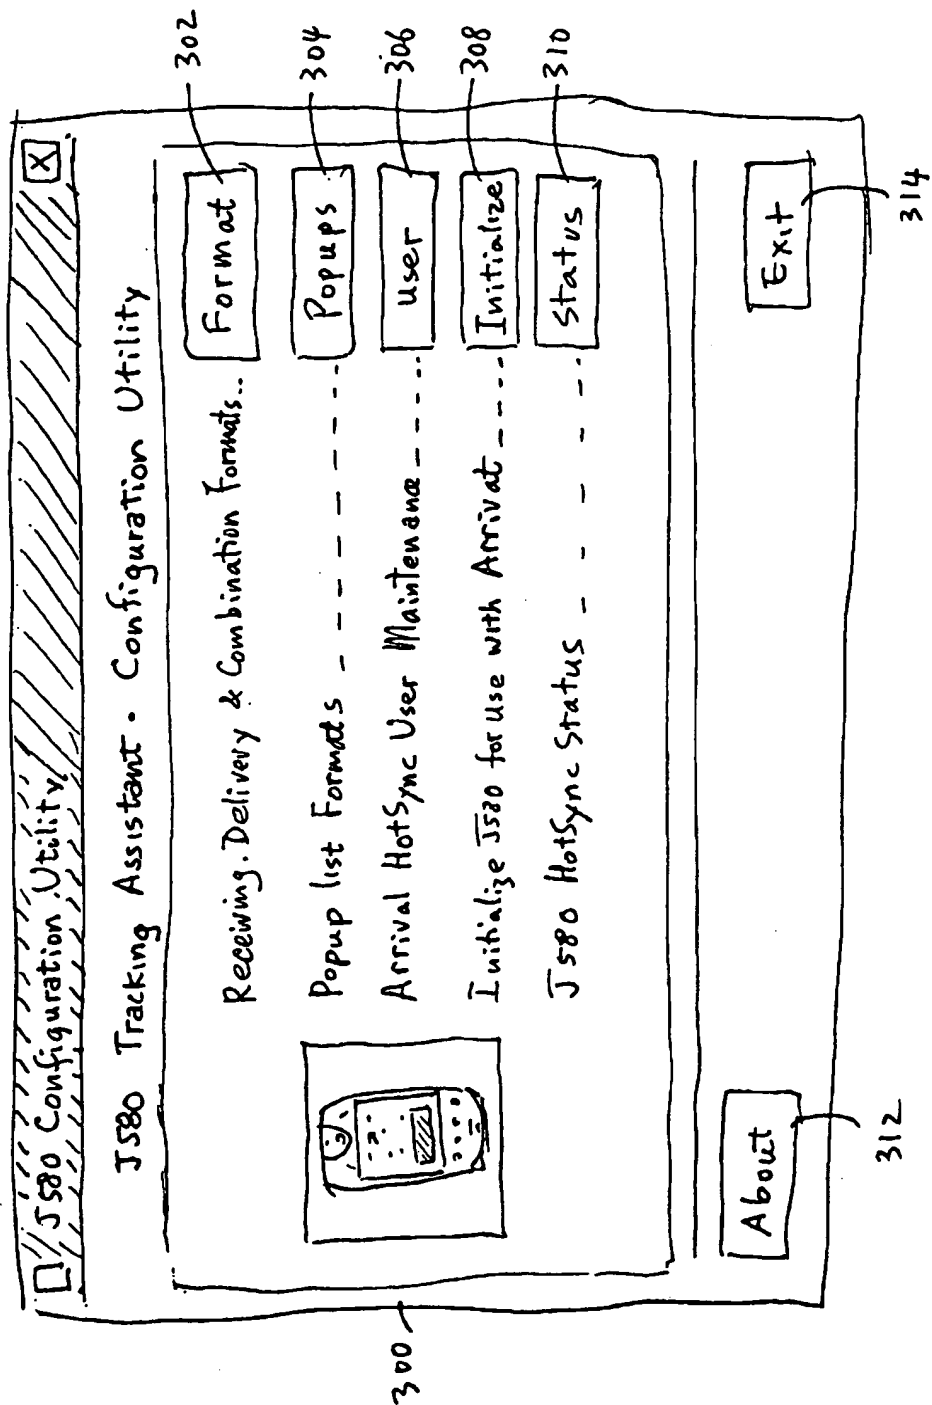 J580 Configuration Utility
X
J580 Tracking Assistant · Configuration Utility
Receiving. Delivery & Combination Formats..
Format
302
Popup list Formats
Popups
304
Arrival HotSync User Maintenance
User
306
Initialize J580 for use with Arrival
Initialize
308
J580 HotSync Status
Status
310
300
About
312
Exit
314